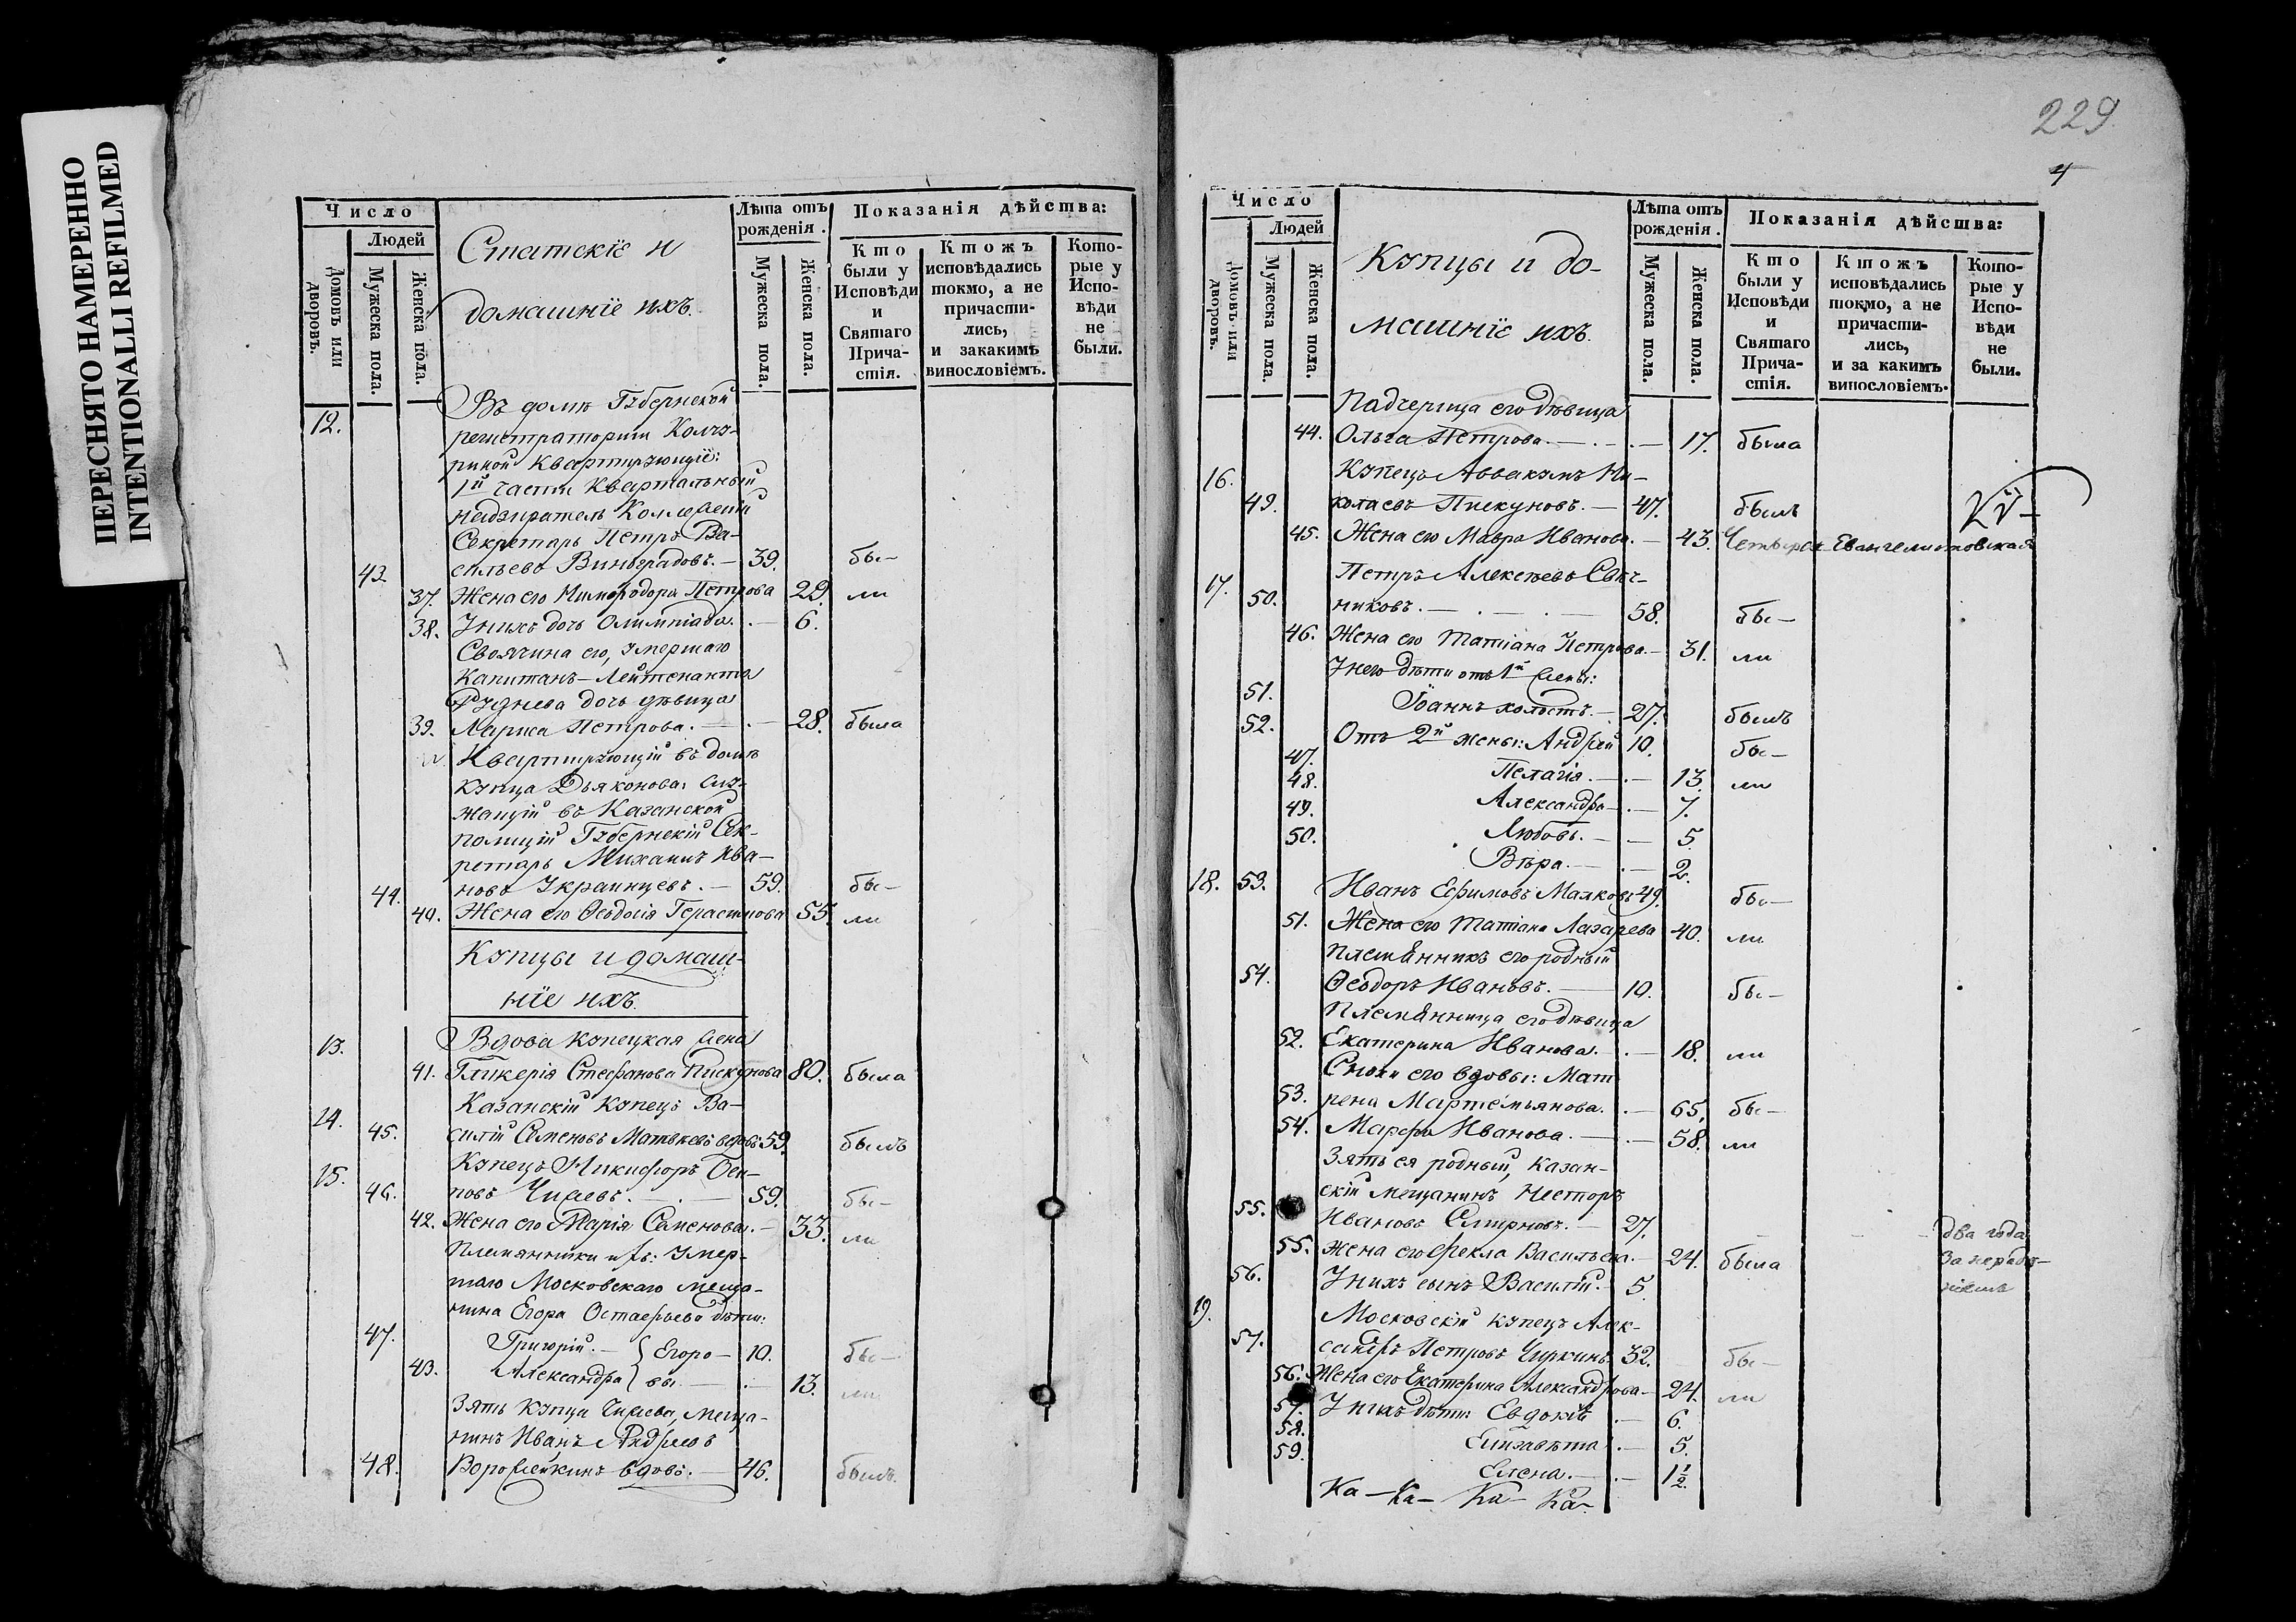 ПЕРЕСНЯТО НАМЕРЕННО
INTENTIONALLI REFILMED
Число
Людей
Домовъ или дворовъ.
Мужеска пола.
Женска пола.
Статскіе и
домашніе ихъ.
Лѣта отъ рожденія.
Мужеска пола.
Женска пола.
Показанія дѣйства:
Кто были у Исповѣди и Святаго Причастія.
Ктожъ исповѣдались токмо, а не причастились, и закакимъ винословіемъ.
Которые у Исповѣди не были.
12. Въ домѣ Губернской
регистраторши
Квартирующіе:
1й части Квартальный
надзиратель Коллежскій
Секретарь Петръ Ва-
43. сильевъ Виноградовъ. — 39. бы-
37. Жена его Минодора Петрова 29. ли
38. У нихъ дочь Олимпіада. — 6.
Своячина его, умершаго
Капитанъ-Лейтенанта
Руднева дочь дѣвица
39. Лариса Петрова. — 28. была
Квартирующій въ домѣ
купца Дьяконова: слу-
жащій въ Казанской
полиціи Губернскій Сек-
ретарь Михаилъ Ива-
44. новъ Украинцевъ. — 59. бы-
40. Жена его Ѳеодосія Герасимова 55. ли
Купцы и домаш-
ніе ихъ.
13. Вдова купецкая жена
41. Гликерія Стефанова Пискунова 80. была
14. Казанскій купецъ Ва-
45. силій Семеновъ вдовъ 59. былъ
15. Купецъ Никифоръ
46. повъ — 59. бы-
42. Жена его Марія Семенова. — 33. ли
Племянники ихъ: Умер-
шаго Московскаго меща-
нина Егора Остафьева дѣти:
47. Григорій. — Егоро- 10. бы-
43. Александра вы. — 13. ли
Зять купца меща-
нинъ Иванъ Андреевъ
48. вдовъ. — 46. былъ.
229
4
Число
Людей
Домовъ или дворовъ.
Мужеска пола.
Женска пола.
Купцы и до-
машніе ихъ.
Лѣта отъ рожденія.
Мужеска пола.
Женска пола.
Показанія дѣйства:
Кто были у Исповѣди и Святаго Причастія.
Ктожъ исповѣдались токмо, а не причастились, и за какимъ винословіемъ.
Которые у Исповѣди не были.
Падчерица его дѣвица
44. Ольга Петрова. — 17. была
16. Купецъ Аввакумъ Ни-
49. колаевъ Пискуновъ. — 47. былъ
45. Жена его Мавра Иванова. — 43. Четырех-Евангелистовская
17. Петръ Алексѣевъ Свѣч-
50. никовъ. — 58. бы-
46. Жена его Татіана Петрова. — 31. ли
У него дѣти отъ 1й жены:
51. Іоаннъ холостъ. — 27. былъ
52. Отъ 2й жены: Андрей 10. бы-
47. Пелагія. — 13. ли
48. Александра — 7.
49. Любовь. — 5.
50. Вѣра. — 2.
18. 53. Иванъ Ефимовъ Маяковъ 49. бы-
51. Жена его Татіана Лазарева 40. ли
Племянникъ его родный
54. Ѳеодоръ Ивановъ. — 10. бы-
Племянница его дѣвица
52. Екатерина Иванова. — 18. ли
Снохи его вдовы: Мат-
53. рена Мартемьянова. — 65. бы-
54. Марфа Иванова. — 58. ли
Зять ея родный, Казан-
скій мещанинъ Несторъ
55. Ивановъ Смирновъ. — 27. два года
55. Жена его Фекла Васильева. — 24. была За нерадѣ-
56. У нихъ сынъ Василій. — 5. ніемъ
19. Московскій купецъ Алек-
57. сандръ Петровъ Чуркинъ 32. бы-
56. Жена его Екатерина Александрова — 24. ли
57. У нихъ дѣти: Евдокія — 6.
58. Елизавета — 5.
59. Елена. — 1 1/2.
Ка — Ка — Ка — Ка-